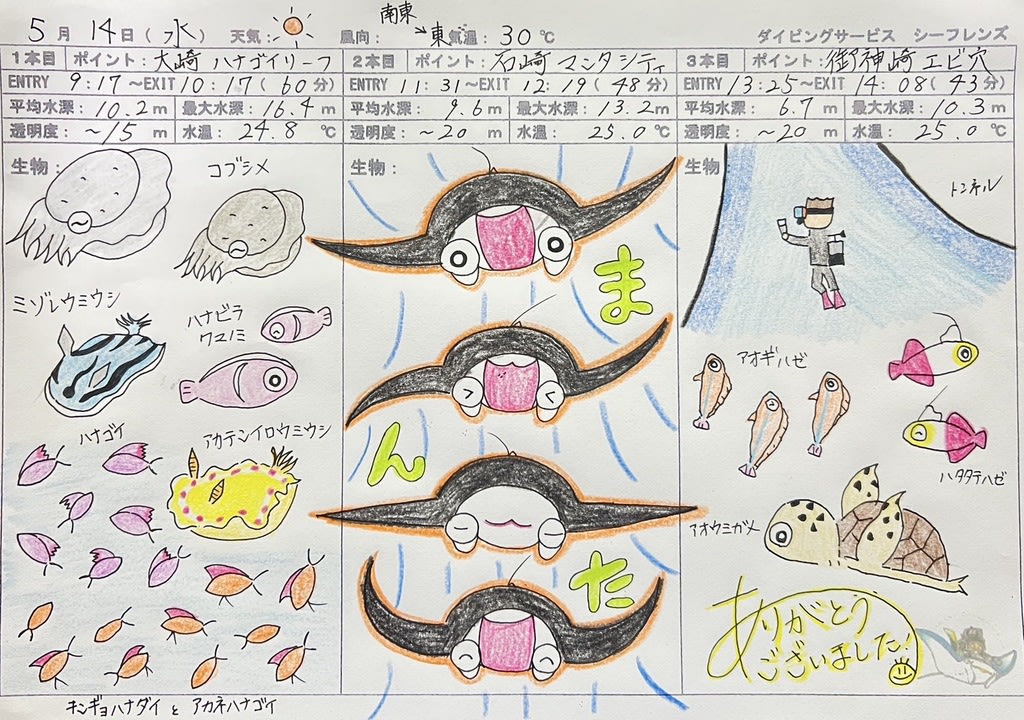 5月14日(水) 天気: 風向: 南東→東 気温: 30℃ ダイビングサービス シーフレンズ
1本目 ポイント: 大崎 ハナゴイリーフ
ENTRY 9:17 ～EXIT 10:17 (60分)
平均水深: 10.2m 最大水深: 16.4m
透明度: ～15m 水温: 24.8℃
生物:
コブシメ
ミゾレウミウシ
ハナビラ
クマノミ
ハナゴイ
アカテンイロウミウシ
キンギョハナダイ と アカネハナゴイ
2本目 ポイント: 石崎 マンタシティ
ENTRY 11:31 ～EXIT 12:19 (48分)
平均水深: 9.6m 最大水深: 13.2m
透明度: ～20m 水温: 25.0℃
生物:
ま
ん
た
3本目 ポイント: 御神崎 エビ穴
ENTRY 13:25 ～EXIT 14:08 (43分)
平均水深: 6.7m 最大水深: 10.3m
透明度: ～20m 水温: 25.0℃
生物:
トンネル
アオギハゼ
ハタタテハゼ
アオウミガメ
ありがとう
ございました!